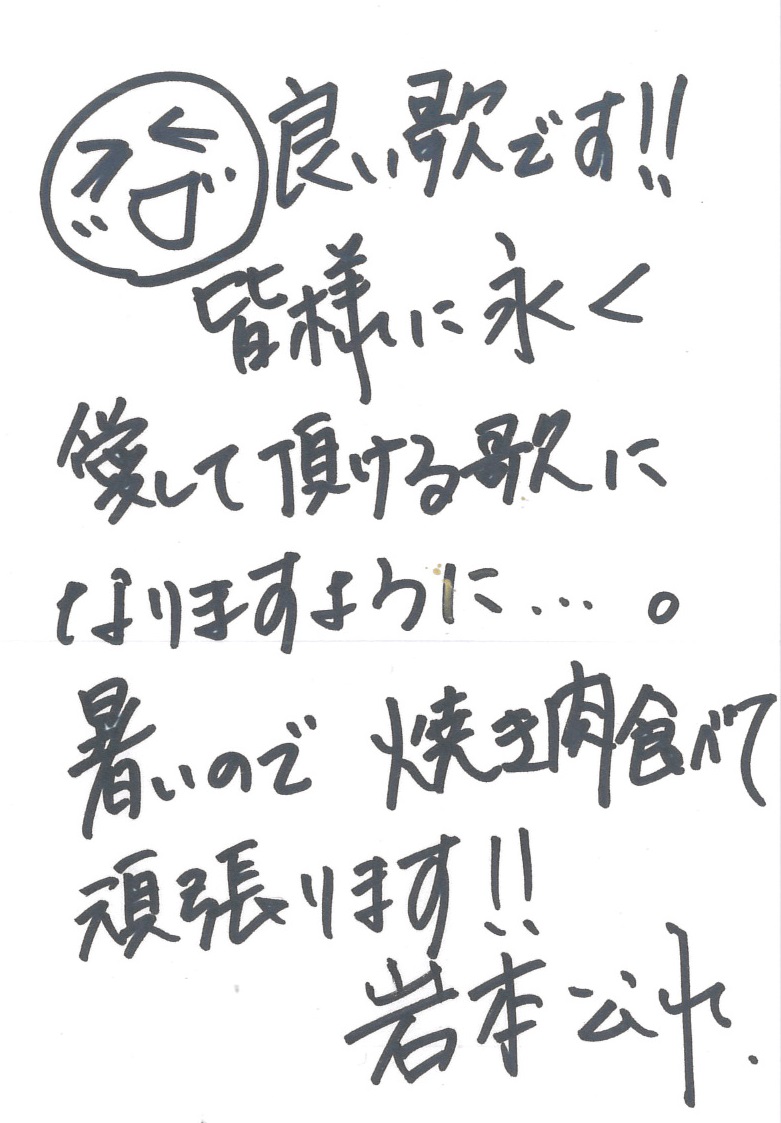 良い歌です!!
皆様に永く
愛して頂ける歌に
なりますように…。
暑いので 焼き肉食べて
頑張ります!!
岩本公水.